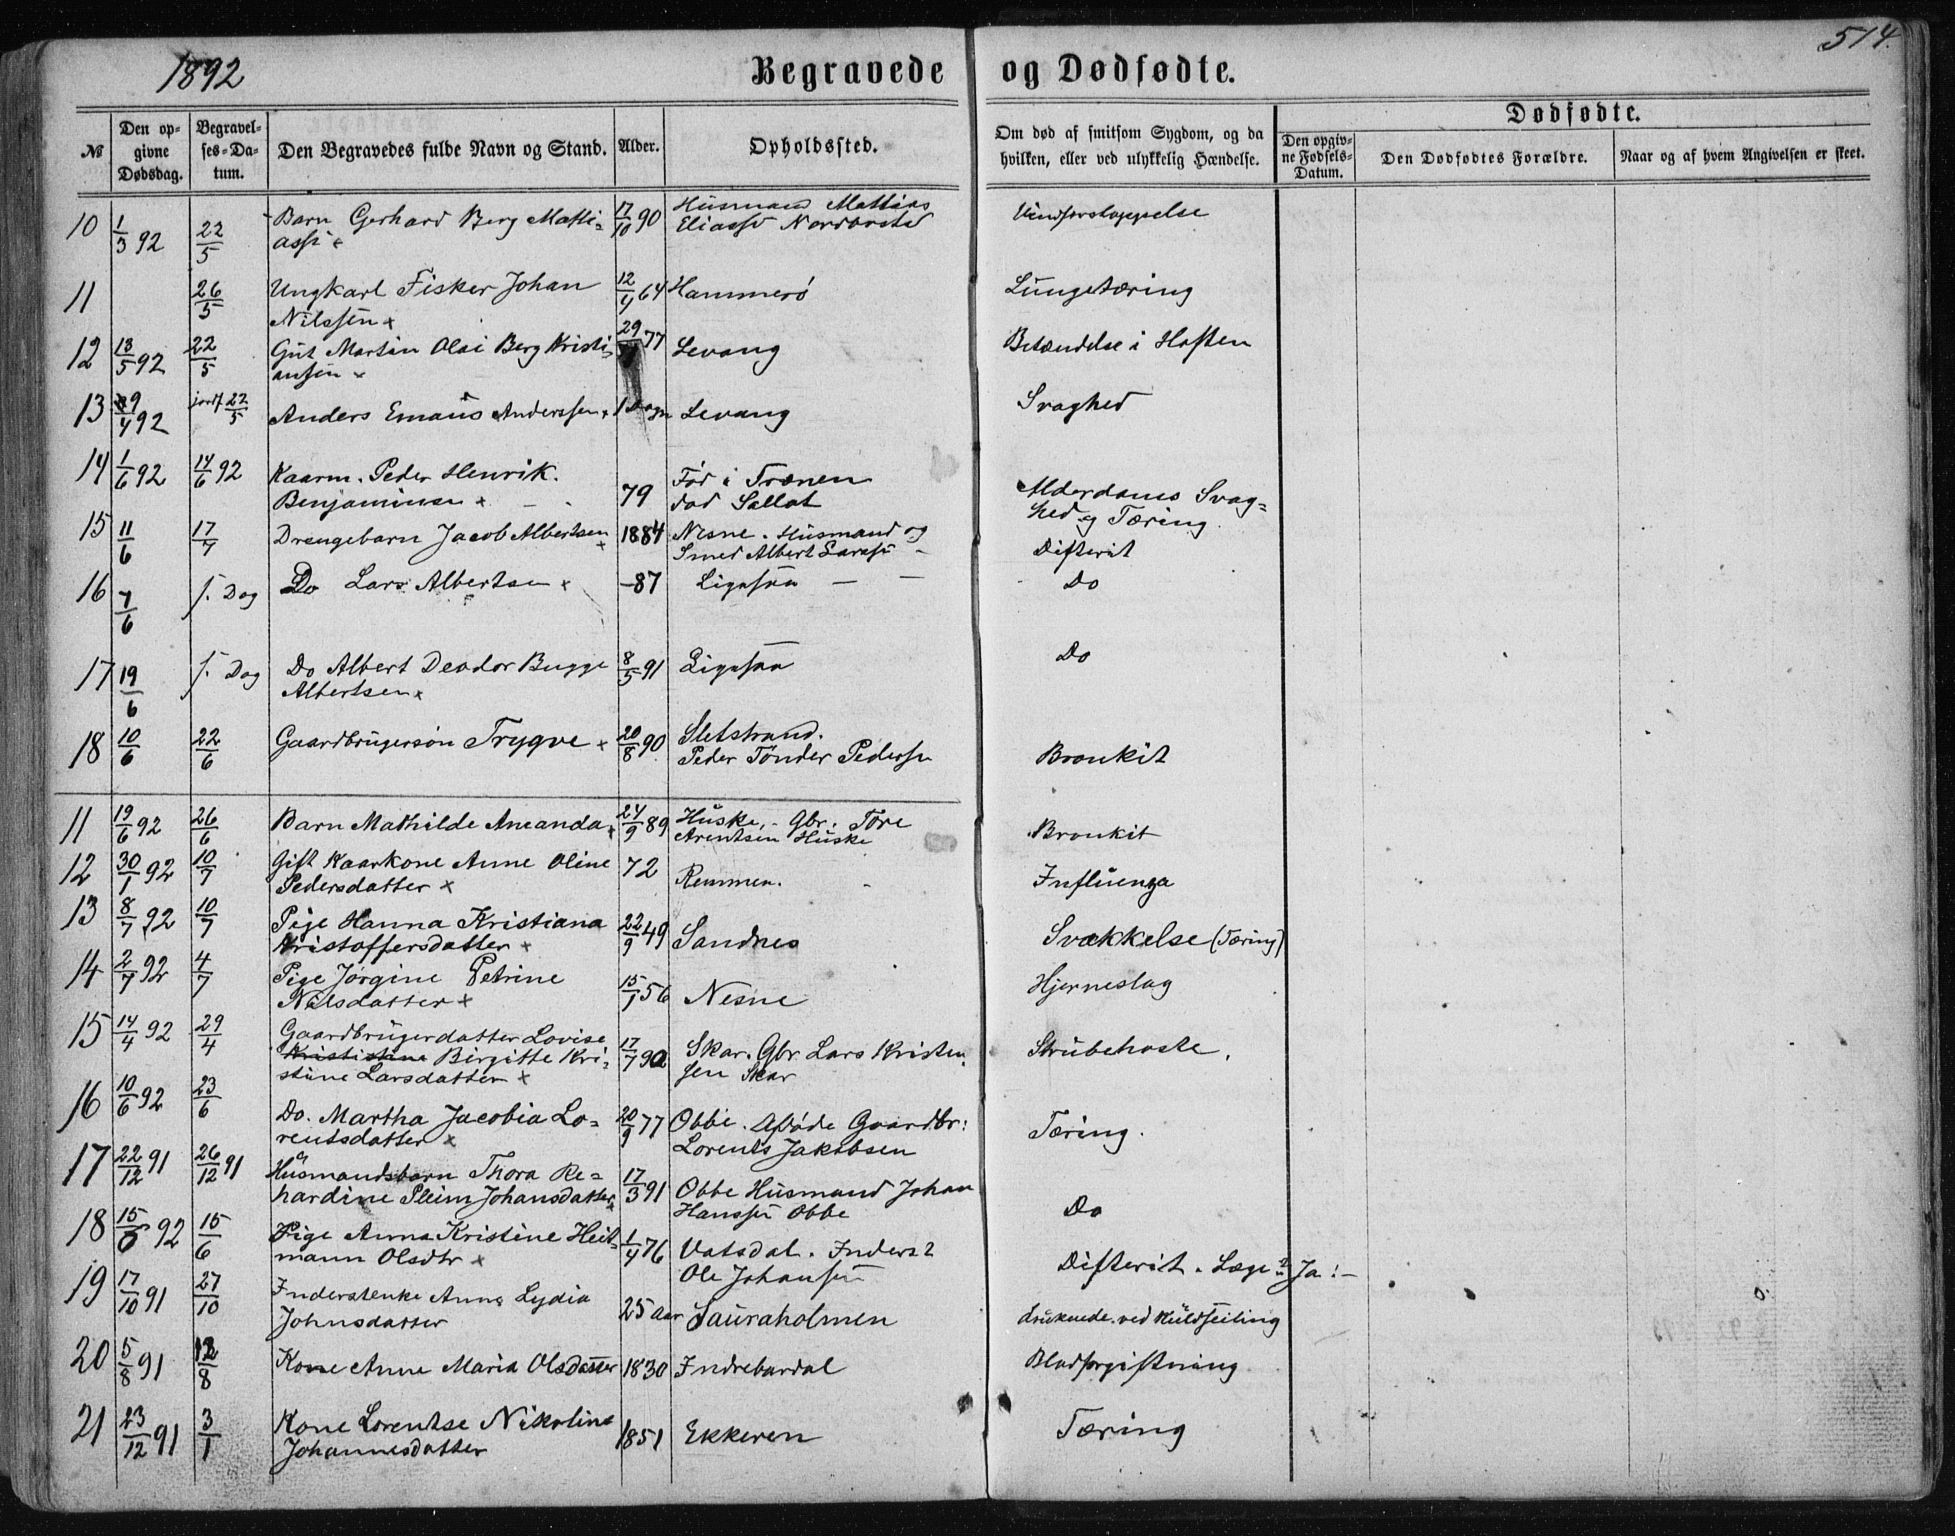 1892
Begravede og Dødfødte.
514.
№
Den opgivne Dødsdag.
Begravelses-Datum.
Den Begravedes fulde Navn og Stand.
Alder.
Opholdssted.
Om død af smitsom Sygdom, og da hvilken, eller ved ulykkelig Hændelse.
Dødfødte.
Den opgivne Fødsels-Datum.
Den Dødfødtes Forældre.
Naar og af hvem Angivelsen er skeet.
10 1/3 92 22/5 Barn Gerhard Berg Matti- 17/10 90 Husmand Mattias
assen x Eliassen
11 26/5 Ungkarl Fisker Johan 12/4 64 Hammerø Lungetæring
Nilssen x
12 13/5 92 22/5 Gut Martin Olai Berg Kristi- 29 77 Levang Betændelse i Hoften
ansen x
13 92 jordf 22/5 Anders Emaus Anderssen x 1 Døgn Levang Svaghed
14 1/6 92 14/6 92 Kaarm. Peder Henrik. Fød i Trænen Alderdoms Svag-
Benjaminsen x 79 død Sallat hed og Tæring.
15 11/6 17/7 Drengebarn Jacob Albertsen x 1884 Nesne. Husmand og Difterit
Smed Albert Larssen
16 7/6 s. Dag Do Lars Albertsen x -87 Do
17 19/6 s. Dag Do Albert Deodor Bugge 8/5 91 Do
Albertsen x
18 10/6 22/6 Gaardbrugersøn Trygve x 20/8 90 Sletstrand. Bronkit
Peder Tønder Pedersen
11 19/6 92 26/6 Barn Mathilde Amanda x 24/9 89 Huske, - Gbr. Tore Bronkit
Arentsen Huske
12 30/1 92 10/7 Gift Kaarkone Anne Oline 72 Remmen. Influenza
Pedersdatter x
13 8/7 92 10/7 Pige Hanna Kristiana 22/9 49 Sandnes Svækkelse (Tæring)
Kristoffersdatter x
14 2/7 92 4/7 Pige Jørgine Petrine 15/1 56 Nesne Hjerneslag
Nilsdatter x
15 14/4 92 29/4 Gaardbrugerdatter Lovise 17/7 90 Skar. Gbr Lars Kristen- Strubehoste.
Birgitte Kri- sen Skar
stine Larsdatter x
16 10/6 92 23/6 Do. Martha Jacobia Lo- 20/9 77 Obbe. Afdøde Gaardbr: Tæring.
rentsdatter x Lorents Jakobsen
17 22/12 91 26/12 91 Husmandsbarn Thora Re- 17/3 91 Obbe Husmand Johan Do
hardine Pleim Johansdatter x Hanssen Obbe
18 15/6 92 15/6 Pige Anna Kristine Heit- 1/4 76 Vatsdal. Inders? Difterit. Læge? Ja!-
mann Olsdtr x Ole Johansen
19 17/10 91 27/10 Inderstenke Anne Lydia 25 Aar Sauraholmen druknede ved Kuldseiling
Johnsdatter
20 5/8 91 12/8 Kone Anne Maria Olsdatter 1830 Indrebardal Blodforgiftning
21 23/12 91 3/1 Kone Lorentse Nikoline 1851 Ekkeren Tæring
Johannesdatter